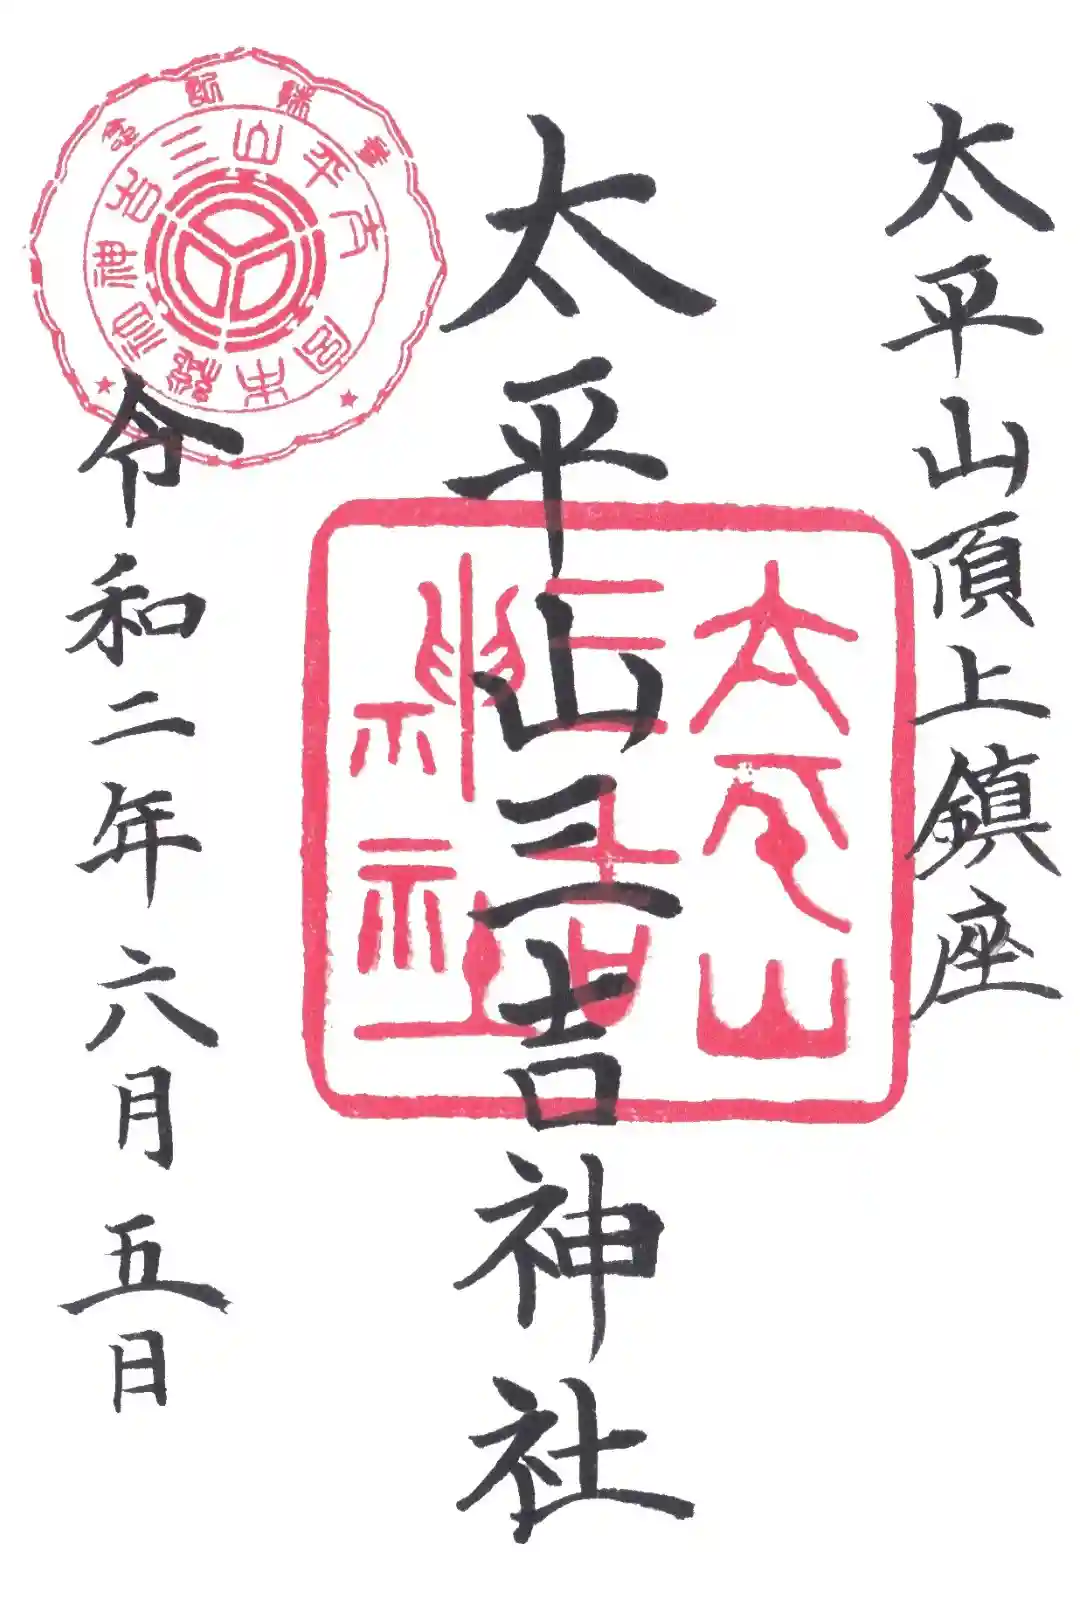 太平山頂上鎮座
太平山三吉神社
令和二年六月五日
太平山
三吉
神社